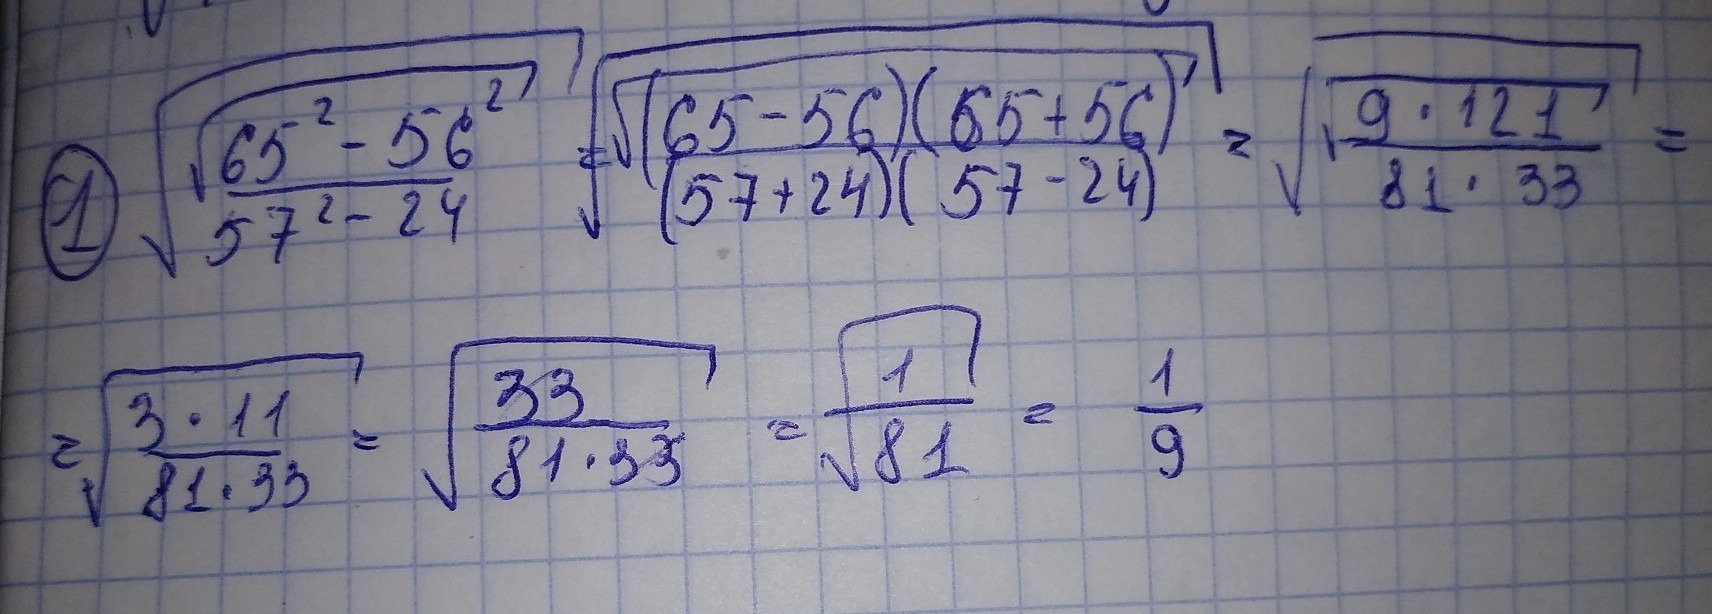 ① √(√(65² - 56²)/(57² - 24)) = √(√((65 - 56)(65 + 56))/((57 + 24)(57 - 24))) = √(√(9 · 121)/(81 · 33)) =
= √((3 · 11)/(81 · 33)) = √(33/(81 · 33)) = √(1/81) = 1/9